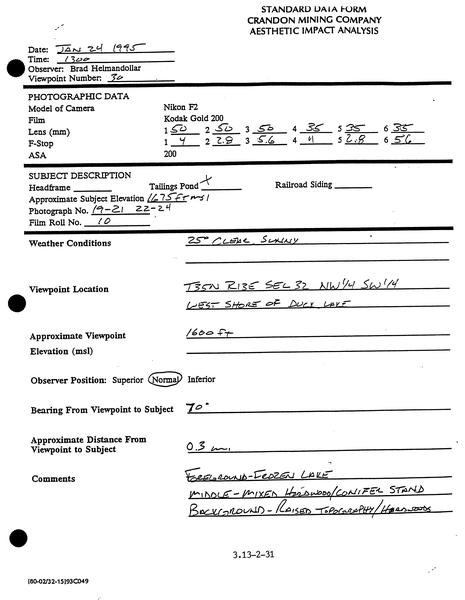 STANDARD DATA FORM
CRANDON MINING COMPANY
AESTHETIC IMPACT ANALYSIS
Date: JAN 24 1995
Time: 1300
Observer: Brad Heimandollar
Viewpoint Number: 30
PHOTOGRAPHIC DATA
Model of Camera Nikon F2
Film Kodak Gold 200
Lens (mm) 1 50 2 50 3 50 4 35 5 35 6 35
F-Stop 1 4 2 2.8 3 5.6 4 4 5 2.8 6 5.6
ASA 200
SUBJECT DESCRIPTION
Headframe Tailings Pond X Railroad Siding
Approximate Subject Elevation 1675 ft msl
Photograph No. 19-21 22-24
Film Roll No. 10
Weather Conditions 25° CLEAR, SUNNY
Viewpoint Location T35N R13E SEC 32 NW 1/4 SW 1/4
WEST SHORE OF DUCK LAKE
Approximate Viewpoint 1600 ft
Elevation (msl)
Observer Position: Superior Normal Inferior
Bearing From Viewpoint to Subject 70°
Approximate Distance From
Viewpoint to Subject 0.3 mi.
Comments FOREGROUND-FROZEN LAKE
MIDDLE-MIXED HARDWOOD/CONIFER STAND
BACKGROUND-RAISED TOPOGRAPHY/HARDWOODS
3.13-2-31
(60-02/32-15)93C049